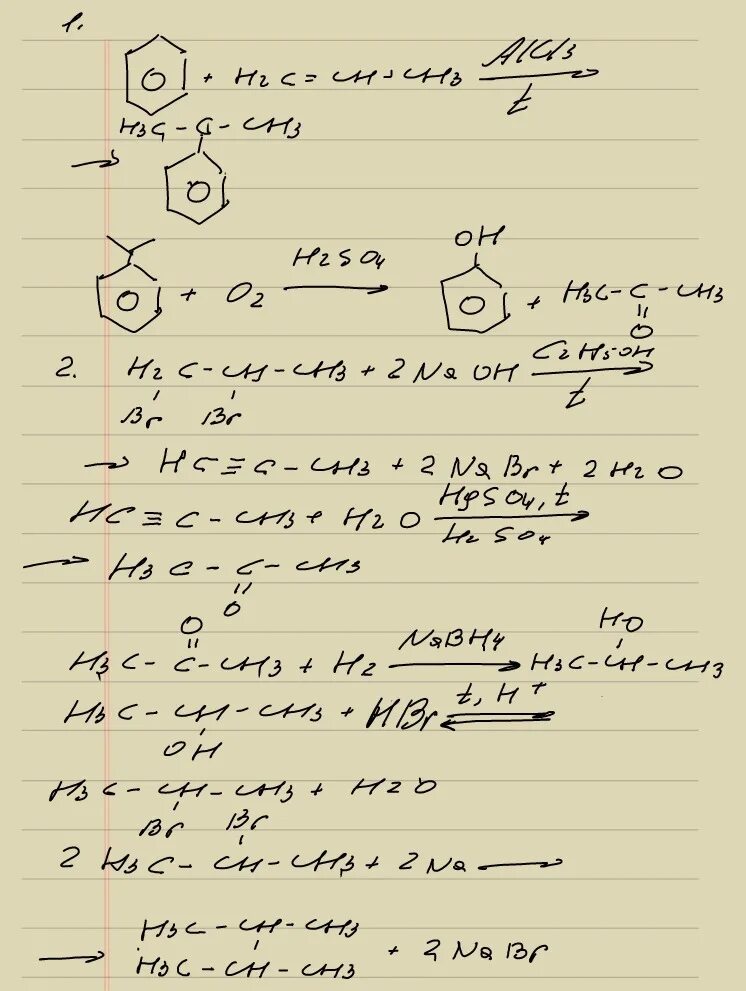 1.
+ H2C=CH-CH3 AlCl3 t
H3C-C-CH3
→
H2SO4 OH
+ O2 → + H3C-C-CH3
O
2. H2C-CH-CH3 + 2NaOH C2H5OH t
Br Br
→ HC≡C-CH3 + 2NaBr + 2H2O
HC≡C-CH3 + H2O HgSO4, t H2SO4
→ H3C-C-CH3
O
O HO
H3C-C-CH3 + H2 NaBH4 → H3C-CH-CH3
H3C-CH-CH3 + HBr t, H+
OH
H3C-CH-CH3 + H2O
Br Br
2 H3C-CH-CH3 + 2Na →
H3C-CH-CH3
→ + 2NaBr
H3C-CH-CH3